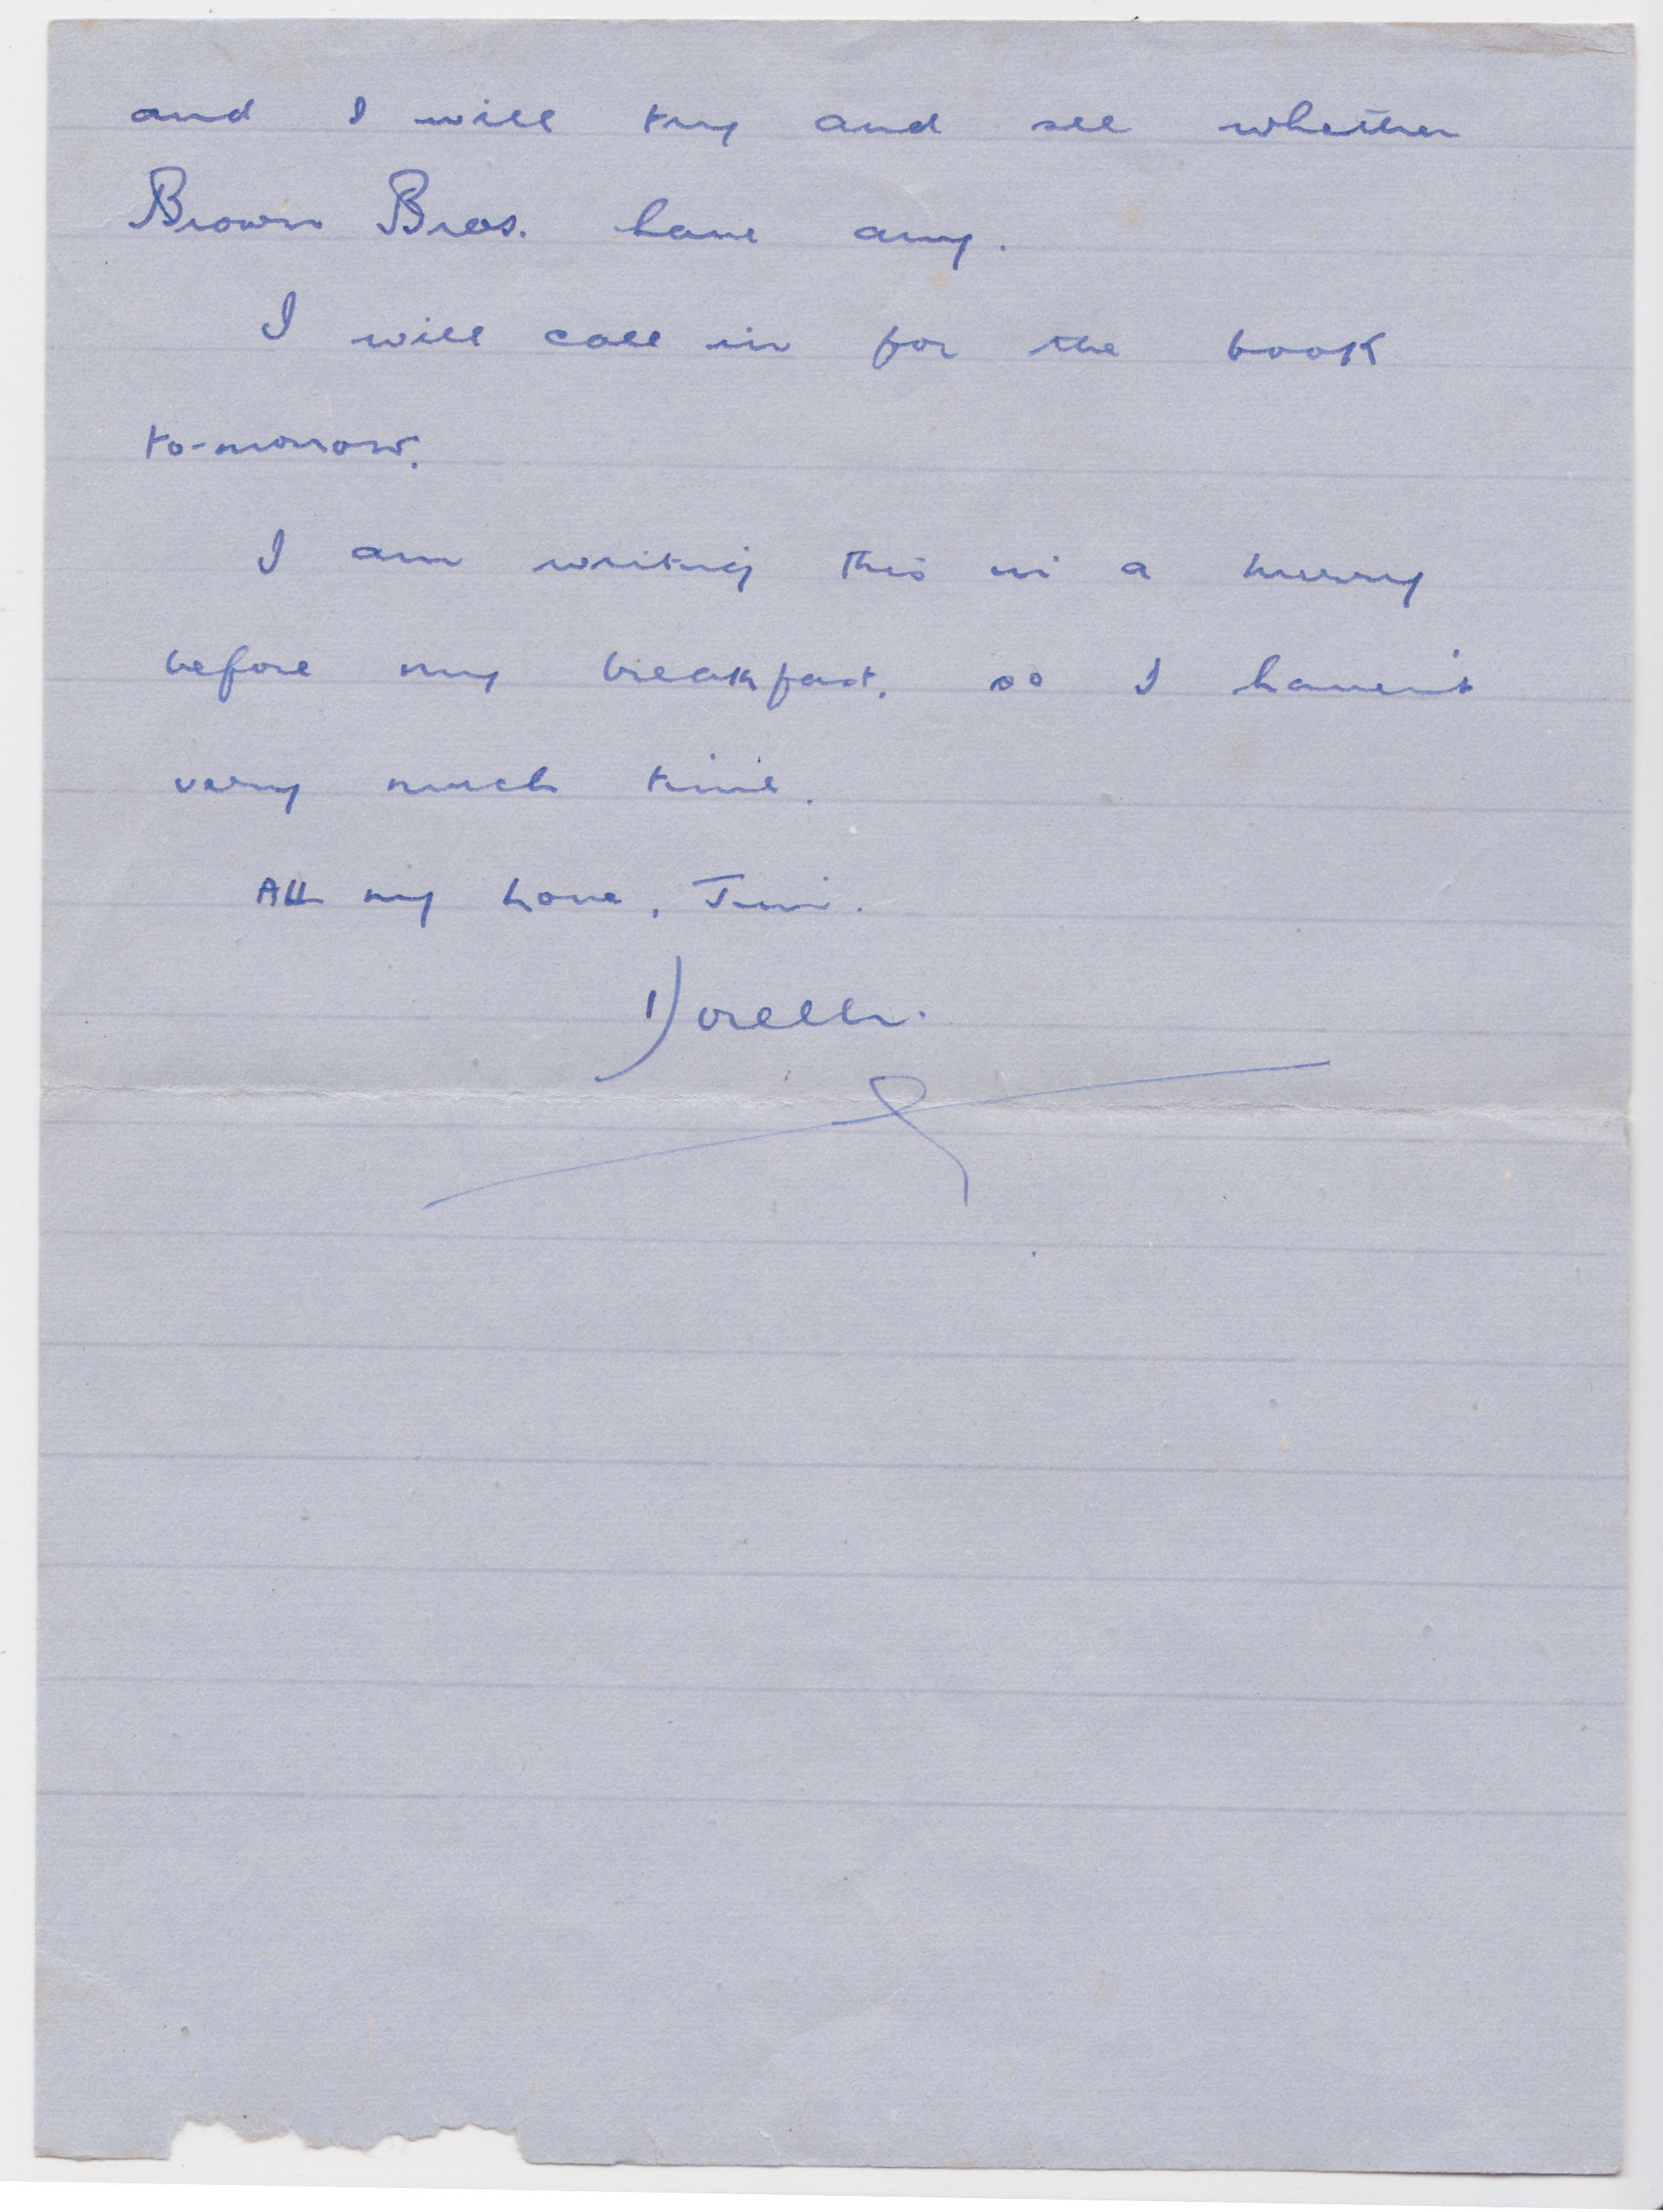 and I will try and see whether
Brown Bros. have any.
I will call in for the book
to-morrow.
I am writing this in a hurry
before my breakfast, so I haven't
very much time.
All my Love,